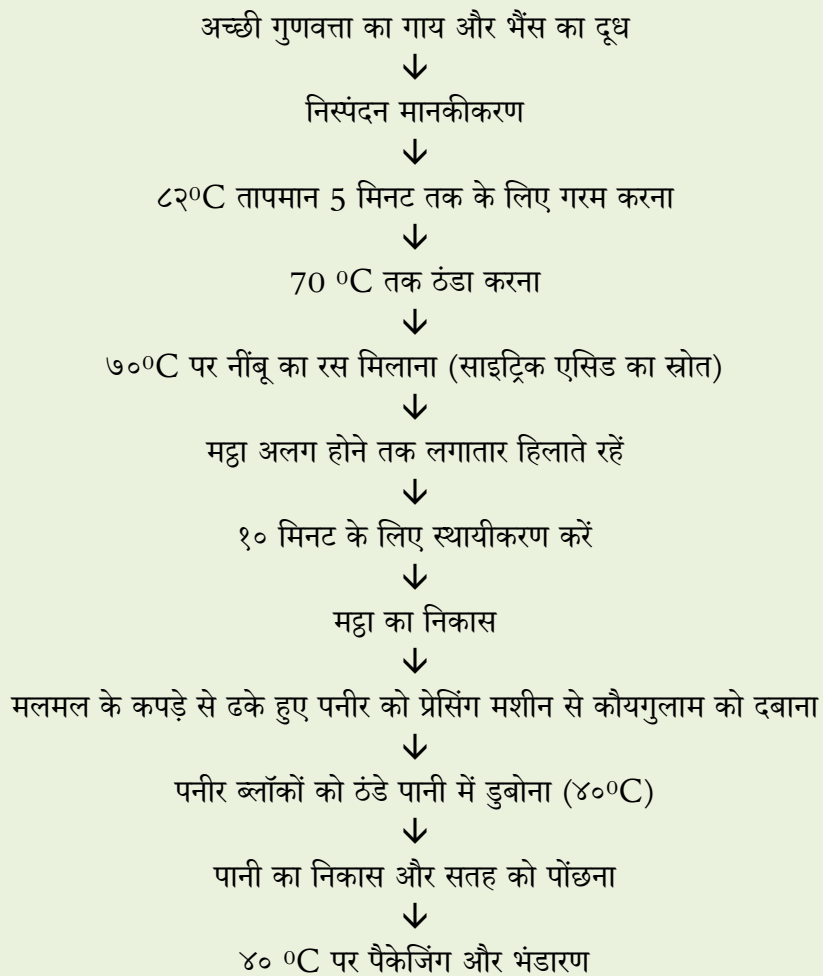 अच्छी गुणवत्ता का गाय और भैंस का दूध
↓
निस्पंदन मानकीकरण
↓
८२⁰C तापमान 5 मिनट तक के लिए गरम करना
↓
70 ⁰C तक ठंडा करना
↓
७०⁰C पर नींबू का रस मिलाना (साइट्रिक एसिड का स्रोत)
↓
मट्ठा अलग होने तक लगातार हिलाते रहें
↓
१० मिनट के लिए स्थायीकरण करें
↓
मट्ठा का निकास
↓
मलमल के कपड़े से ढके हुए पनीर को प्रेसिंग मशीन से कौयगुलाम को दबाना
↓
पनीर ब्लॉकों को ठंडे पानी में डुबोना (४०⁰C)
↓
पानी का निकास और सतह को पोंछना
↓
४० ⁰C पर पैकेजिंग और भंडारण